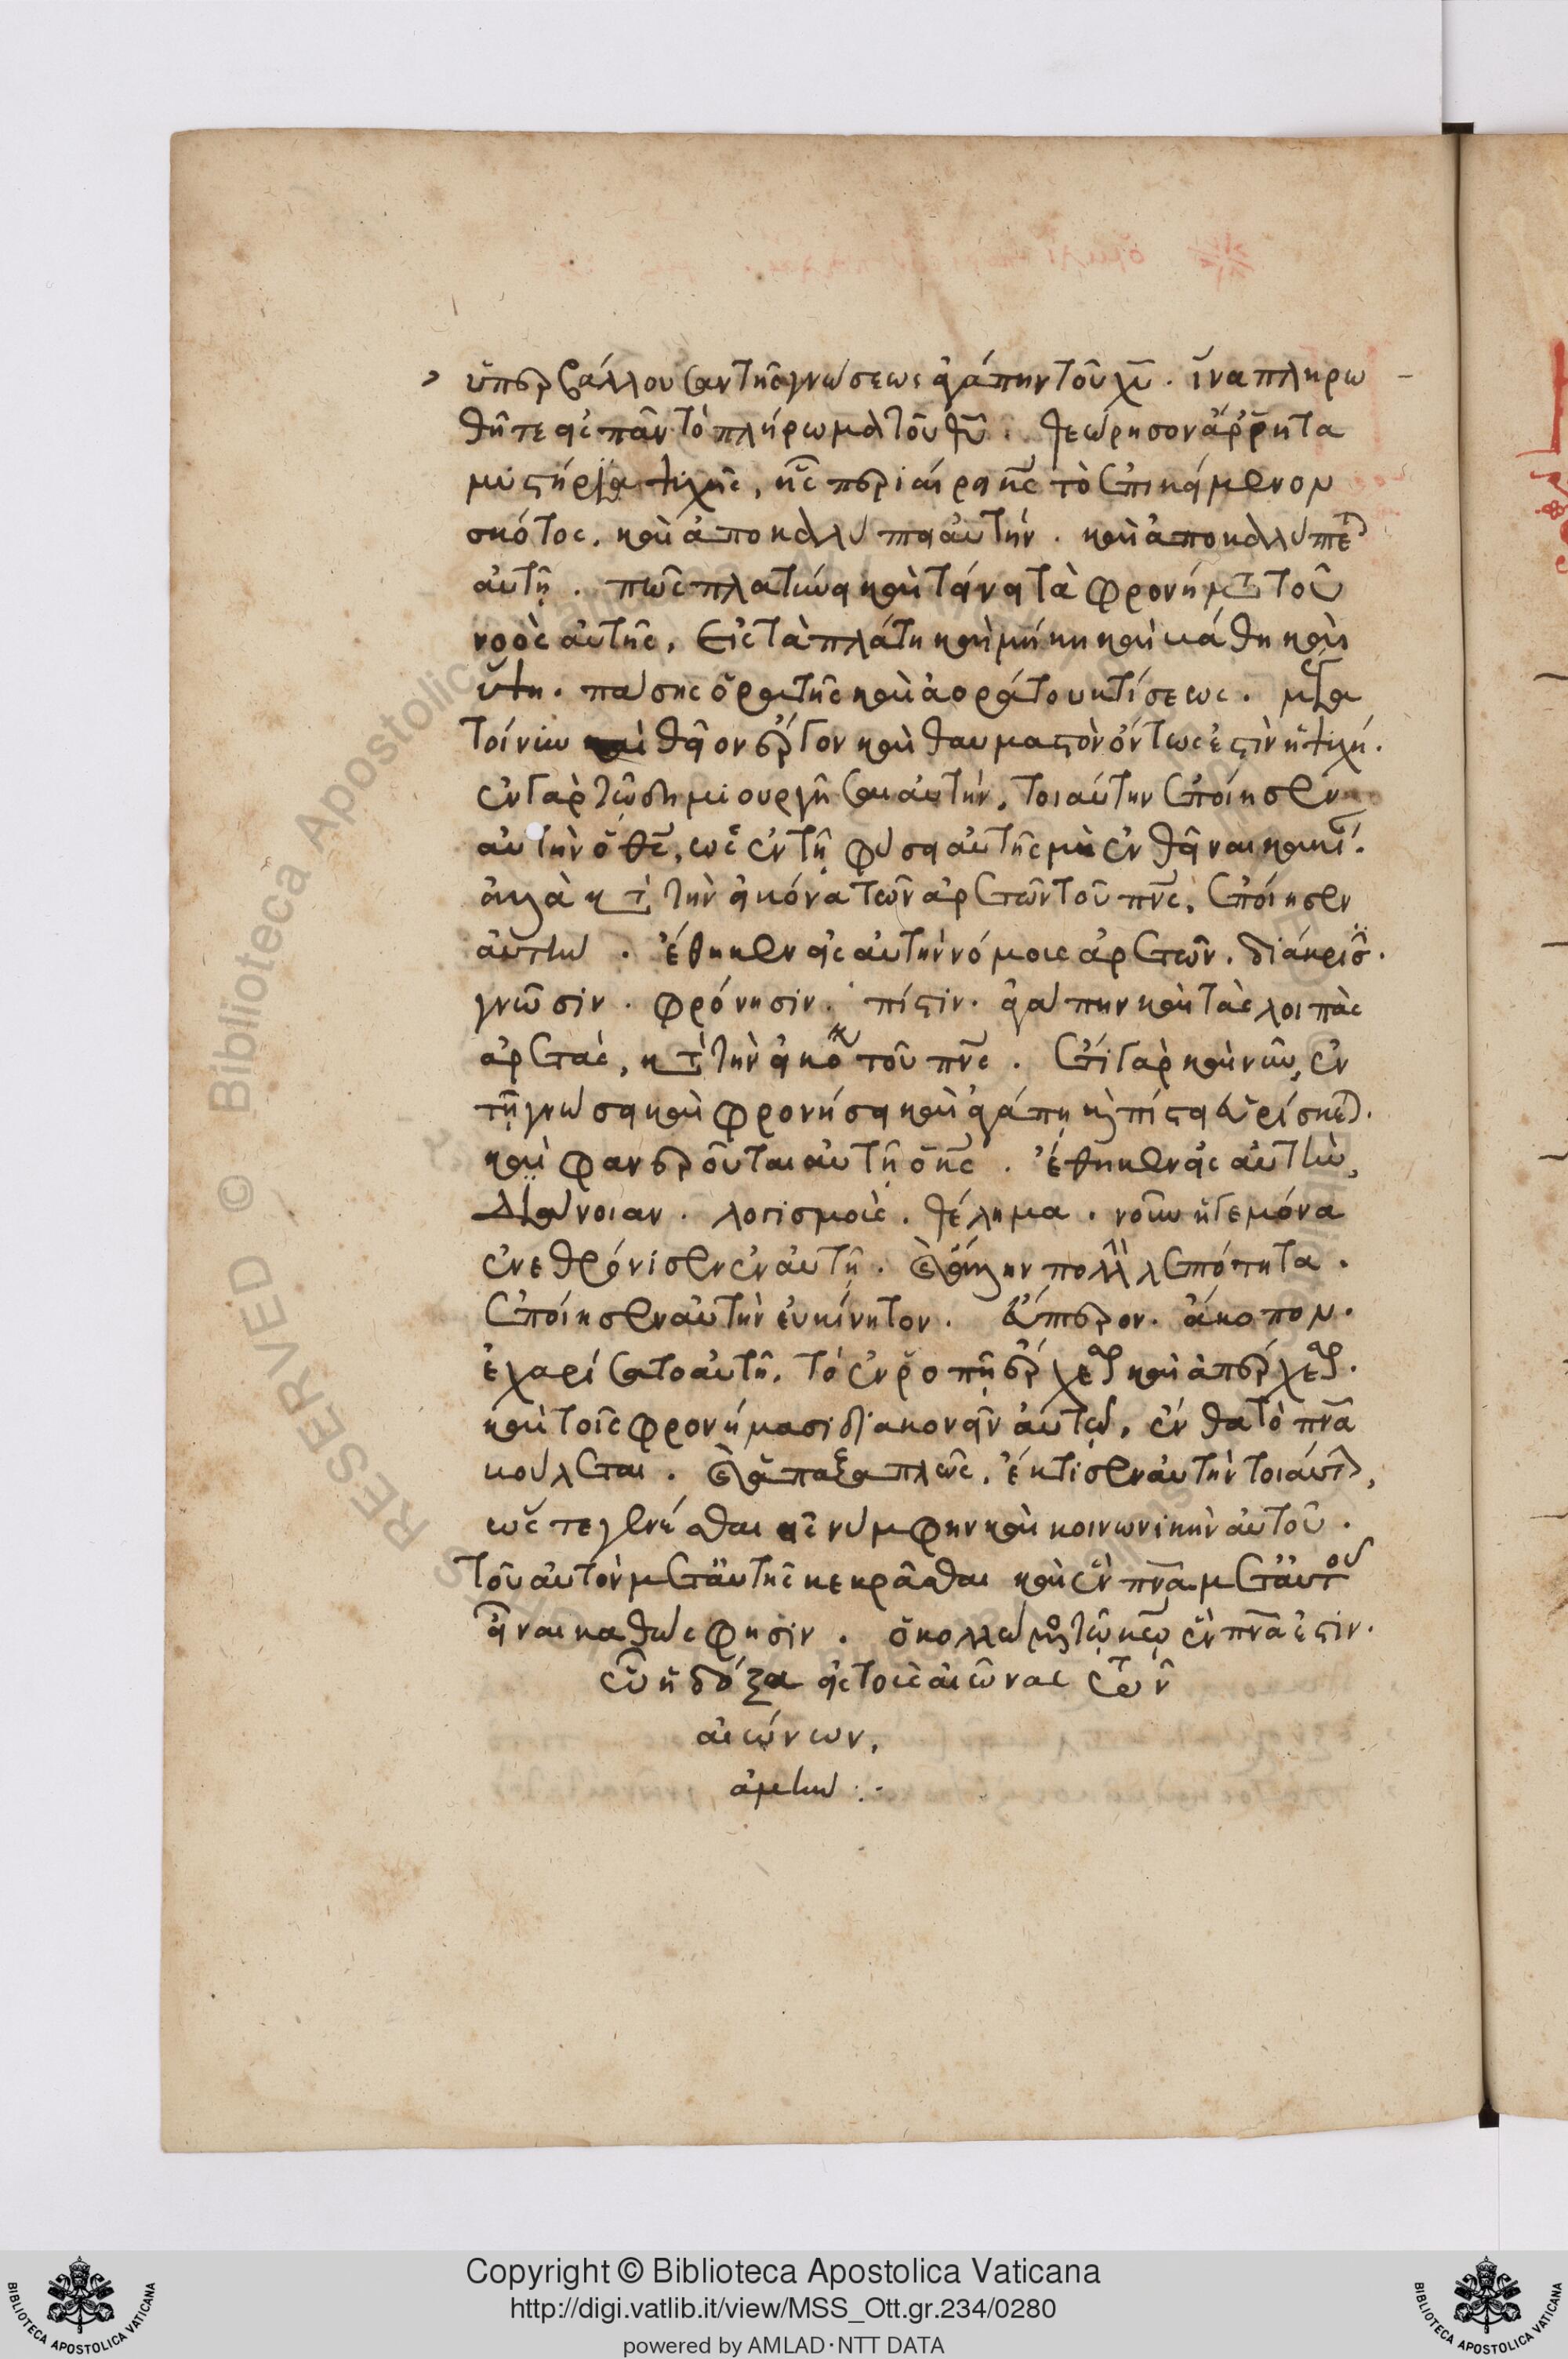 ὑπερβάλλουσαν τῆς γνώσεως ἀγάπην τοῦ χυ. ἵνα πληρω
θῆτε εἰς πᾶν τὸ πλήρωμα τοῦ θυ. θεώρησον ἄρρητα
μυστήρια ψυχῆς, ἧς περιαίρει κς τὸ ἐπικείμενον
σκότος. καὶ ἀποκαλύπτει αὐτήν. καὶ ἀποκαλύπτεται
αὐτῇ. πῶς πλατύνει καὶ τείνει τὰ φρονήματα τοῦ
νοὸς αὐτῆς, εἰς τὰ πλάτη καὶ μήκη καὶ βάθη καὶ
ὕψη. πάσης ὁρατῆς καὶ ἀοράτου κτίσεως. μέγα
τοίνυν καὶ θεῖον ἔργον καὶ θαυμαστὸν ὄντως ἐστὶν ἡ ψυχή.
ἐν γὰρ τῷ δημιουργῆσαι αὐτήν, τοιαύτην ἐποίησεν
αὐτὴν ὁ θς, ὡς ἐν τῇ φύσει αὐτῆς μὴ ἐνθεῖναι κακί.
ἀλλὰ κατὰ τὴν εἰκόνα τῶν ἀρετῶν τοῦ πνς, ἐποίησεν
αὐτήν. ἔθηκεν εἰς αὐτὴν νόμους ἀρετῶν. διάκρισ.
γνῶσιν. φρόνησιν. πίστιν. ἀγάπην καὶ τὰς λοιπὰς
ἀρετάς, κατὰ τὴν εἰκόνα τοῦ πνς. ἔτι γὰρ καὶ νῦν, ἐν
τῇ γνώσει καὶ φρονήσει καὶ ἀγάπῃ καὶ πίστει εὑρίσκεται.
καὶ φανεροῦται αὐτῇ ὁ κς. ἔθηκεν εἰς αὐτήν,
διάνοιαν. λογισμούς. θέλημα. νοῦν ἡγεμόνα
ἐνεθρόνισεν ἐν αὐτῇ. πολλ λεπτότητα.
ἐποίησεν αὐτὴν εὐκίνητον. εὔπτερον. ἄκοπον.
ἐχαρίσατο αὐτῇ, τὸ ἐν ῥοπῇ ἔρχεσθαι καὶ ἀπέρχεσθαι.
καὶ τοῖς φρονήμασι διακονεῖν αὐτῷ, ἔνθα τὸ πνα
βούλεται. καὶ ἁπαξαπλῶς, ἔκτισεν αὐτὴν τοιαύτην,
ὥστε γενέσθαι εἰς νύμφην καὶ κοινωνικὴν αὐτοῦ.
τοῦ αὐτὸν μετ' αὐτῆς κεκρᾶσθαι καὶ ἓν πνα μετ' αὐτοῦ
εἶναι καθώς φησιν. ὁ κολλώμενος τῷ κω ἓν πνα ἐστιν.
ᾧ ἡ δόξα εἰς τοὺς αἰῶνας τῶν
αἰώνων,
ἀμήν :.
Copyright © Biblioteca Apostolica Vaticana
http://digi.vatlib.it/view/MSS_Ott.gr.234/0280
powered by AMLAD·NTT DATA
BIBLIOTECA APOSTOLICA VATICANA
BIBLIOTECA APOSTOLICA VATICANA